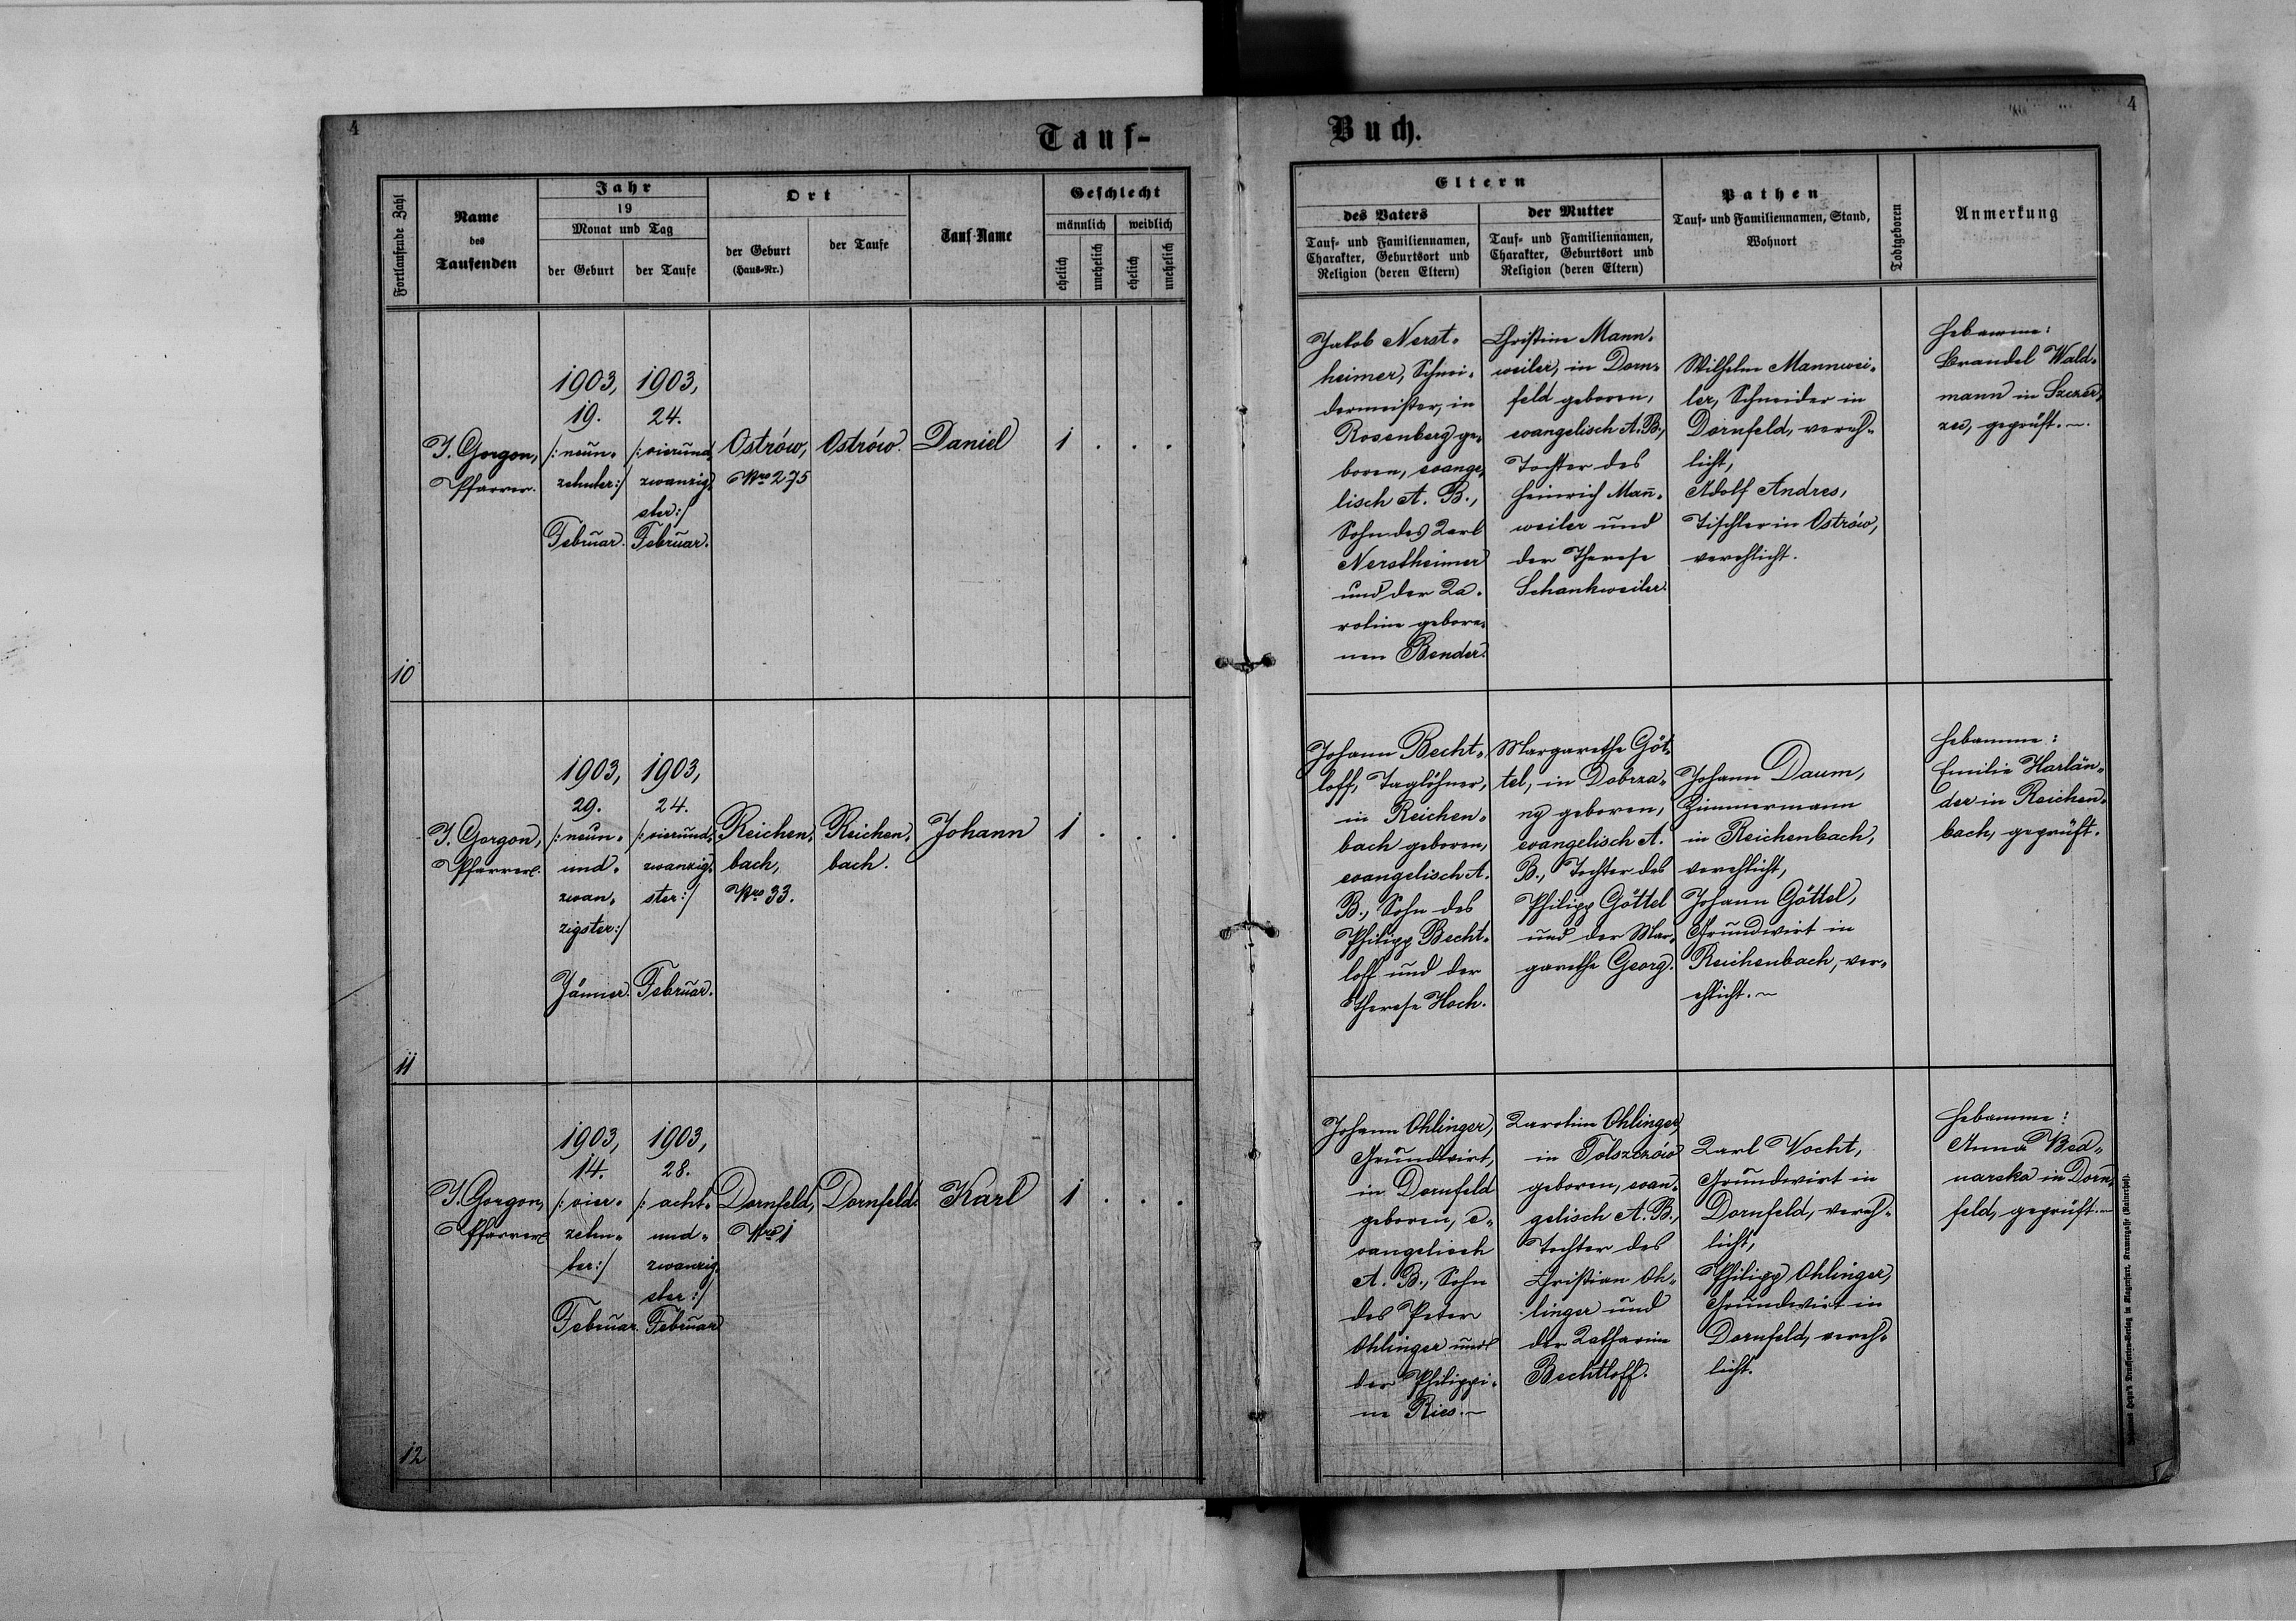 4
Tauf-
Buch.
4
Fortlaufende Zahl
Name
des
Taufenden
Jahr
19
Monat und Tag
der Geburt
der Taufe
Ort
der Geburt
(Haus-Nr.)
der Taufe
Tauf-Name
Geschlecht
männlich
weiblich
ehelich
unehelich
ehelich
unehelich
Eltern
des Vaters
Tauf- und Familiennamen,
Charakter, Geburtsort und
Religion (deren Eltern)
der Mutter
Tauf- und Familiennamen,
Charakter, Geburtsort und
Religion (deren Eltern)
Pathen
Tauf- und Familiennamen, Stand,
Wohnort
Todtgeboren
Anmerkung
10
J. Gorgon,
Pfarrer.
1903,
19.
/: neun-
zehnter :/
Februar.
1903,
24.
/: vierund-
zwanzig-
ster :/
Februar.
Ostrów,
Nro 275
Ostrów.
Daniel
1 . . .
Jakob Nerst-
heimer, Schnei-
dermeister, in
Rosenberg ge-
boren, evange-
lisch A. B.,
Sohn des Karl
Nerstheimer
und der Ka-
roline gebore-
nen Bender.
Christine Mann-
weiler, in Dorn-
feld geboren,
evangelisch A. B.,
Tochter des
Heinrich Man̄-
weiler und
der Therese
Schankweiler.
Wilhelm Mannwei-
ler, Schneider in
Dornfeld, vereh-
licht,
Adolf Andres,
Tischler in Ostrów,
verehlicht.
Hebamme:
Brandel Wald-
mann in Szczer-
zec, geprüft.~
11
J. Gorgon,
Pfarrer.
1903,
29.
/: neun-
und-
zwan-
zigster :/
Jänner.
1903,
24.
/: vierund-
zwanzig-
ster :/
Februar.
Reichen-
bach,
Nro 33.
Reichen-
bach.
Johann
1 . . .
Johann Becht-
loff, Taglöhner,
in Reichen-
bach geboren,
evangelisch A.
B., Sohn des
Philipp Becht-
loff und der
Therese Hoch.
Margarethe Göt-
tel, in Dobrza-
ny geboren,
evangelisch A.
B., Tochter des
Philipp Göttel
und der Mar-
garethe Georg.
Johann Daum,
Zimmermann
in Reichenbach,
verehlicht,
Johann Göttel,
Grundwirt in
Reichenbach, ver-
ehlicht.~
Hebamme:
Emilie Harlän-
der in Reichen-
bach, geprüft.
12
J. Gorgon,
Pfarrer.
1903,
14.
/: vier-
zehn-
ter :/
Februar.
1903,
28.
/: acht-
und-
zwanzig-
ster :/
Februar
Dornfeld,
Nro 1
Dornfeld.
Karl
1 . . .
Johann Ohlinger,
Grundwirt,
in Dornfeld
geboren, e-
vangelisch
A. B., Sohn
des Peter
Ohlinger und
der Philippi-
ne Ries.~
Karoline Ohlinger,
in Tolszczów
geboren, evan-
gelisch A. B.,
Tochter des
Christian Oh-
linger und
der Katharine
Bechtloff.
Karl Vocht,
Grundwirt in
Dornfeld, vereh-
licht,
Philipp Ohlinger,
Grundwirt in
Dornfeld, vereh-
licht.
Hebamme:
Anna Bed-
narska in Dorn-
feld, geprüft.~